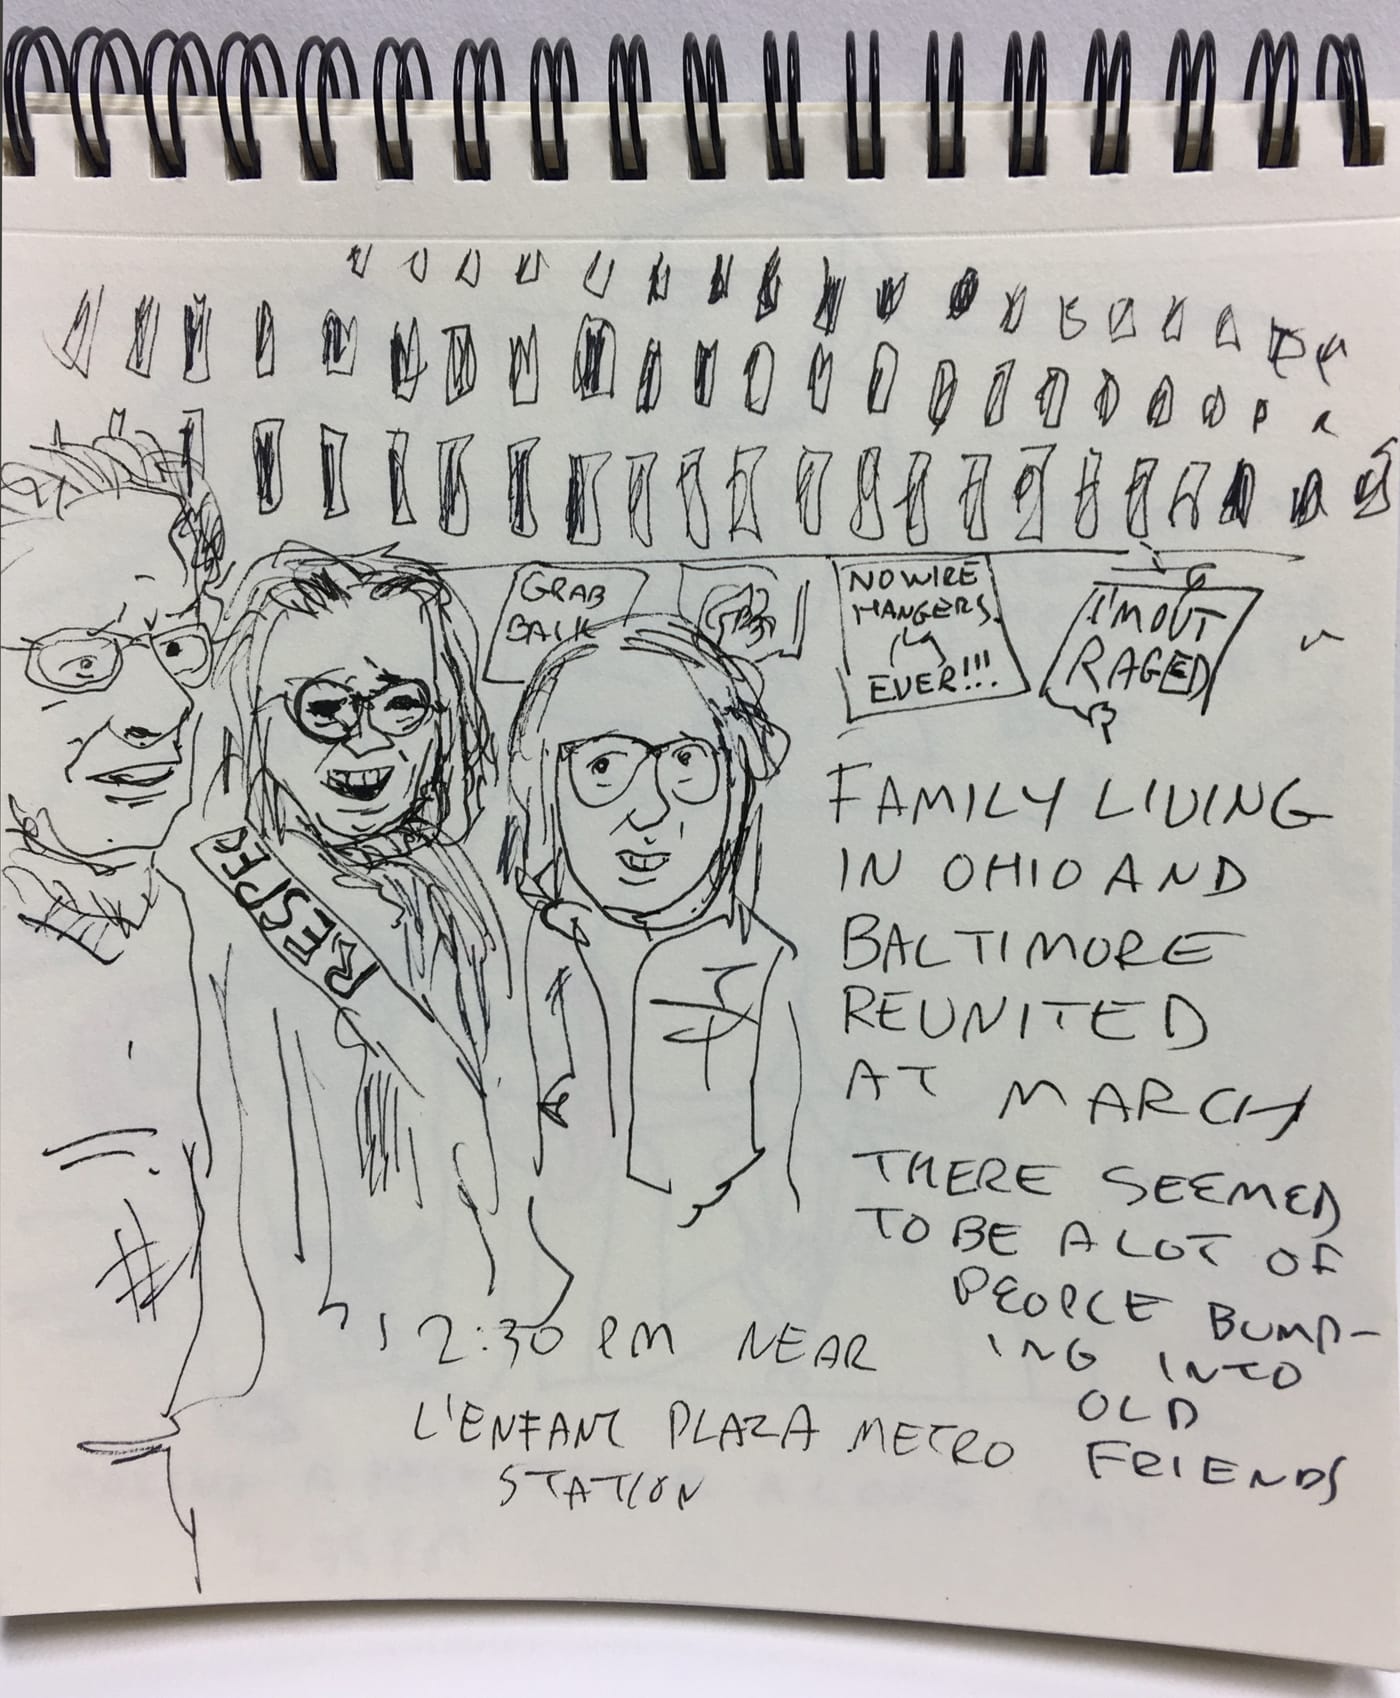 GRAB
BACK
NO WIRE
HANGERS
EVER!!!
I'M OUT
RAGED
RESPEC
FAMILY LIVING
IN OHIO AND
BALTIMORE
REUNITED
AT MARCH
THERE SEEMED
TO BE A LOT OF
PEOPLE BUMP-
ING INTO
OLD
FRIENDS
2:30 PM NEAR
L'ENFANT PLAZA METRO
STATION
#